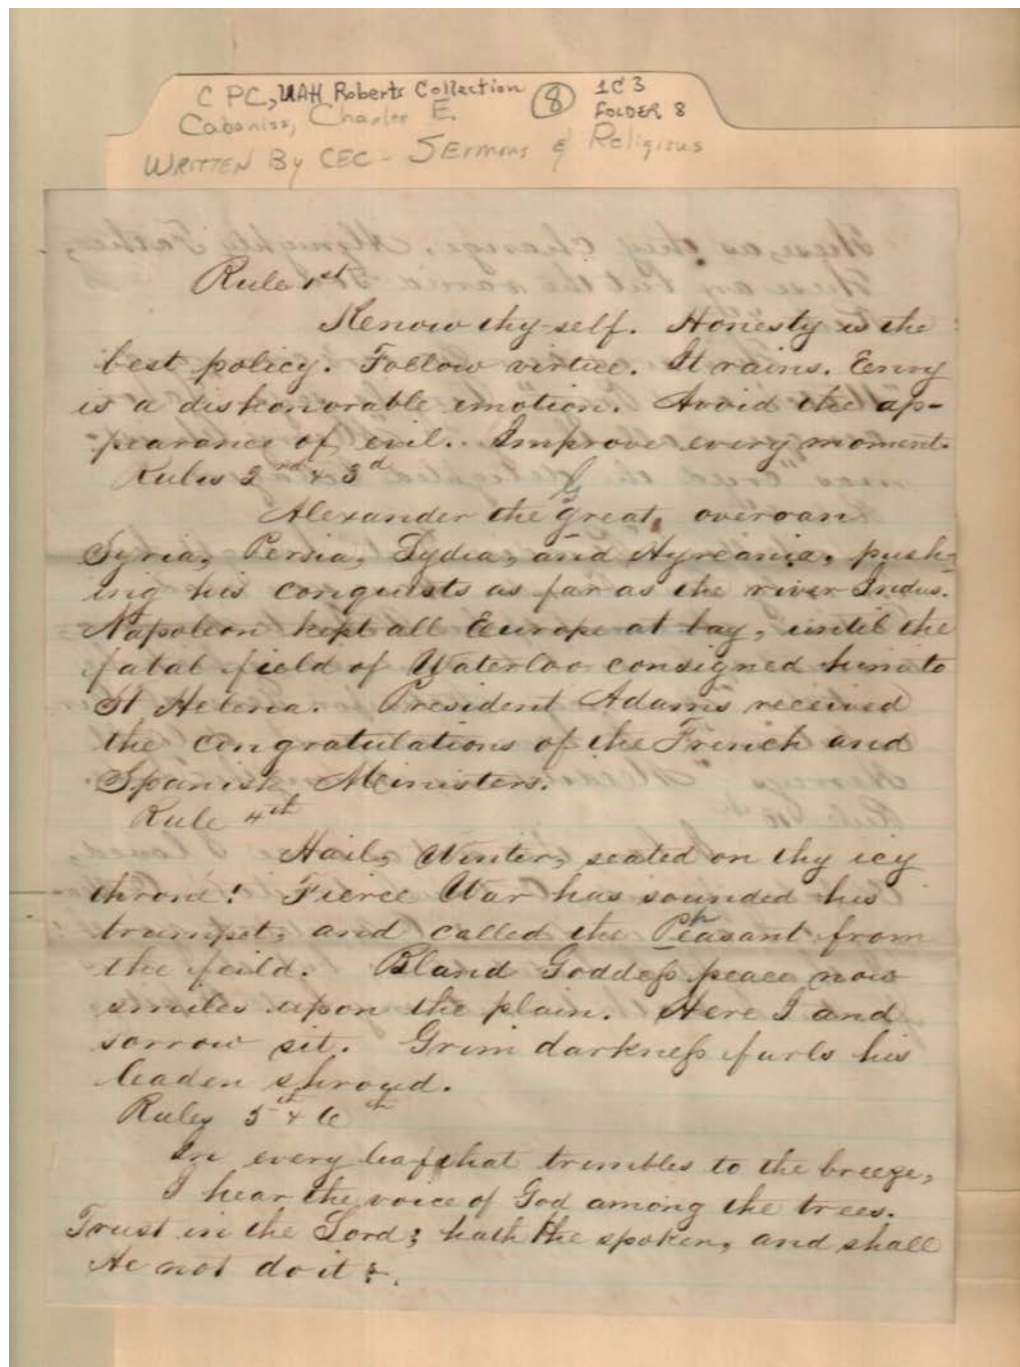 C PC, UAH Roberts Collection 8 1C3
Cabaniss, Charles E. FOLDER 8
WRITTEN By CEC - SErmons & Religious
Rule 1st
Kenow thy-self. Honesty is the
best policy. Follow virtue. It rains. Envy
is a dishonorable emotion. Avoid the ap-
pearance of evil. Improve every moment.
Rules 2nd & 3d
Alexander the Great, overran
Syria, Persia, Lydia, and Hyrcania, push-
ing his conquests as far as the river Indus.
Napoleon kept all Europe at bay, until the
fatal field of Waterloo consigned him to
St Helena. President Adams received
the congratulations of the French and
Spanish Ministers.
Rule 4th
Hail, Winter, seated on thy icy
throne! Fierce War has sounded his
trumpet, and called the Peasant from
the feild. Bland Goddess peace now
smiles upon the plain. Here I and
sorrow sit. Grim darkness furls his
leaden shroud.
Rules 5th & 6th
In every leaf that trembles to the breeze,
I hear the voice of God among the trees.
Trust in the Lord; hath He spoken, and shall
He not do it